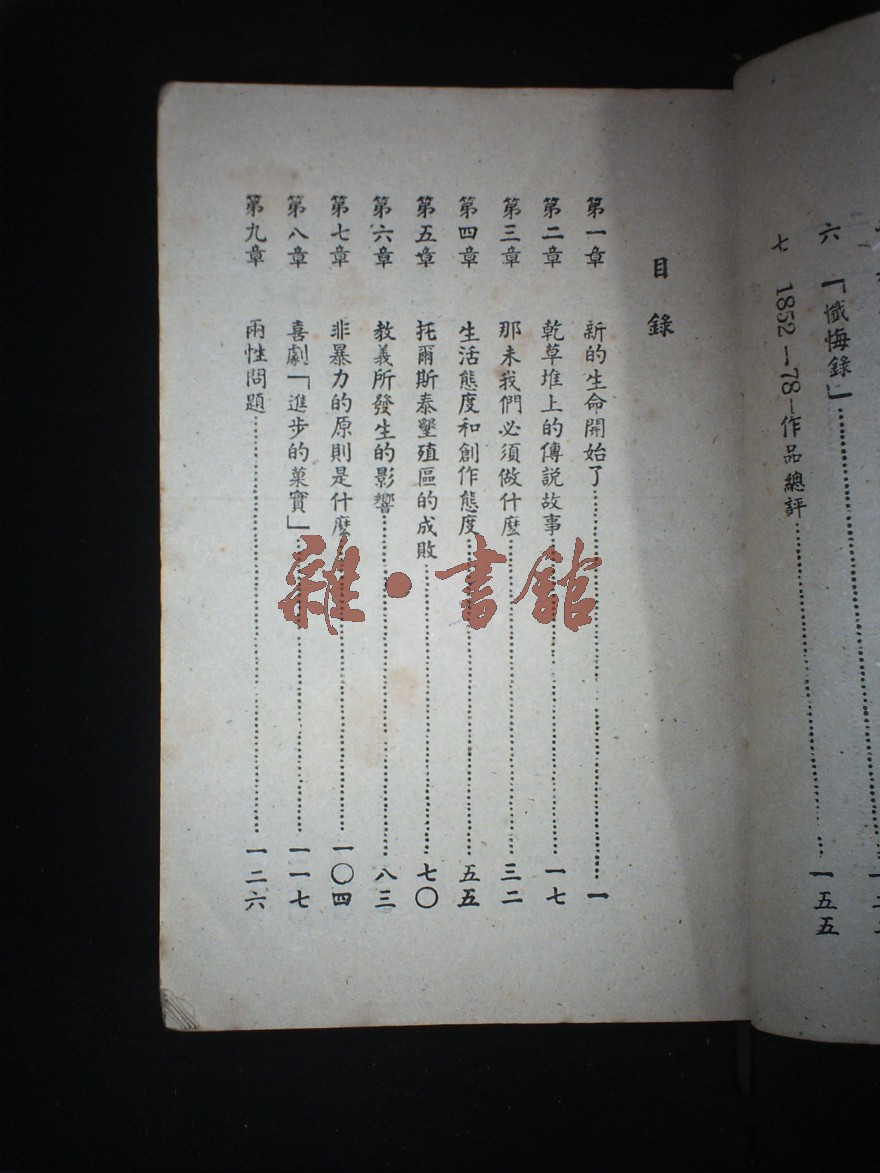 六 「懺悔錄」 一五五
七 1852—78—作品總評
目錄
第一章 新的生命開始了 一
第二章 乾草堆上的傳說故事 一七
第三章 那末我們必須做什麼 三二
第四章 生活態度和創作態度 五五
第五章 托爾斯泰墾殖區的成敗 七〇
第六章 教義所發生的影響 八三
第七章 非暴力的原則是什麼 一〇四
第八章 喜劇「進步的菓實」 一一七
第九章 兩性問題 一二六
雜·書館